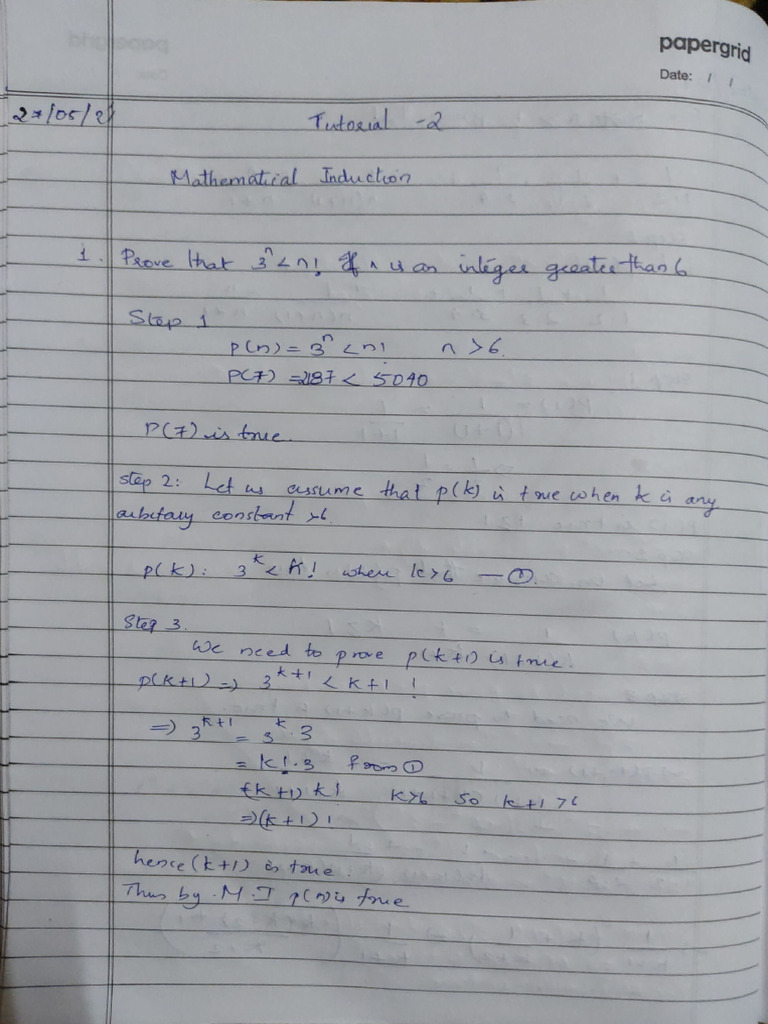 papergrid
Date: / /
27/05/21
Tutorial - 2
Mathematical Induction
1. Prove that 3^n < n! If n is an integer greater than 6
Step 1
P(n) = 3^n < n! n > 6.
P(7) = 2187 < 5040
P(7) is true.
step 2: Let us assume that p(k) is true when k is any
arbitary constant >6.
p(k): 3^k < k! where k>6 — ①.
Step 3.
We need to prove p(k+1) is true.
p(k+1) => 3^k+1 < k+1 !
=> 3^k+1 = 3^k . 3
= k! . 3 from ①
(k+1) k! k>6 so k+1 >6
=> (k+1) !
hence (k+1) is true.
Thus by M.I p(n) is true